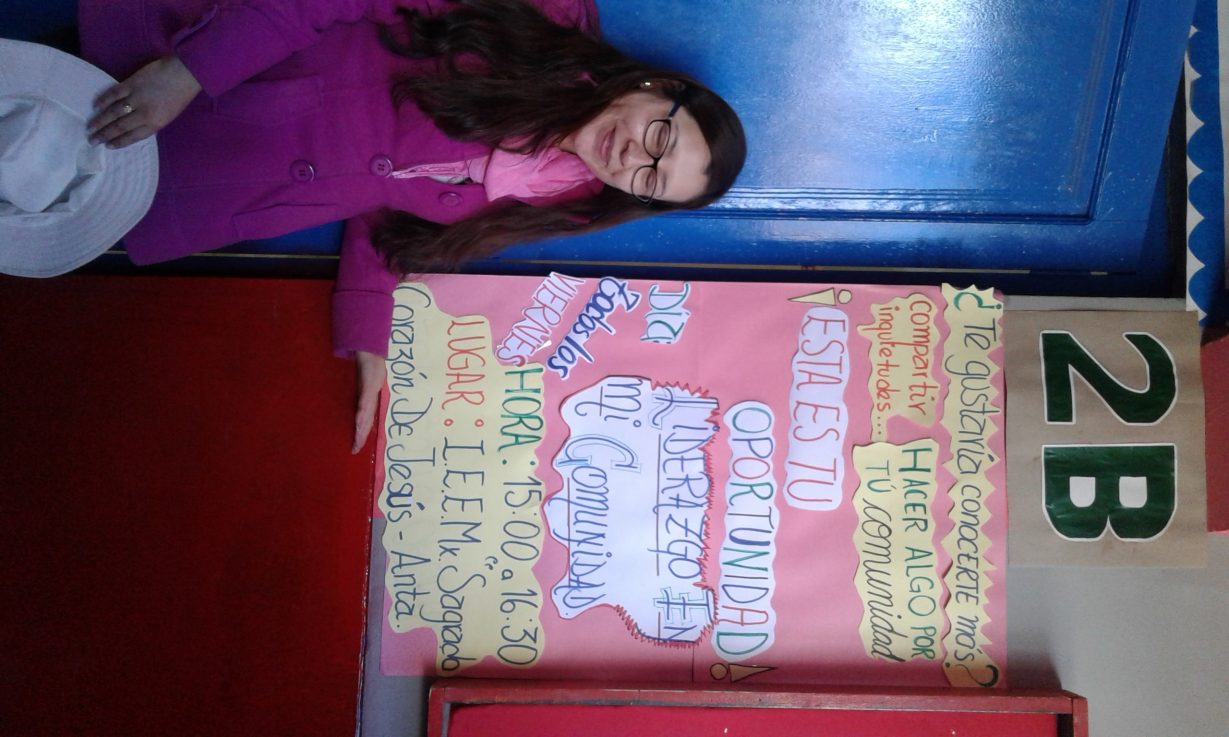 2B
¿Te gustaría conocerte más?
compartir
inquietudes...
HACER ALGO POR
TÚ comunidad
¡ESTA ES TU
OPORTUNIDAD!
LIDERAZGO EN
mi Comunidad
Día:
todos los
VIERNES
HORA : 15:00 a 16:30
LUGAR : I.E.E.Mx. "Sagrado
Corazón De Jesús - Anta.